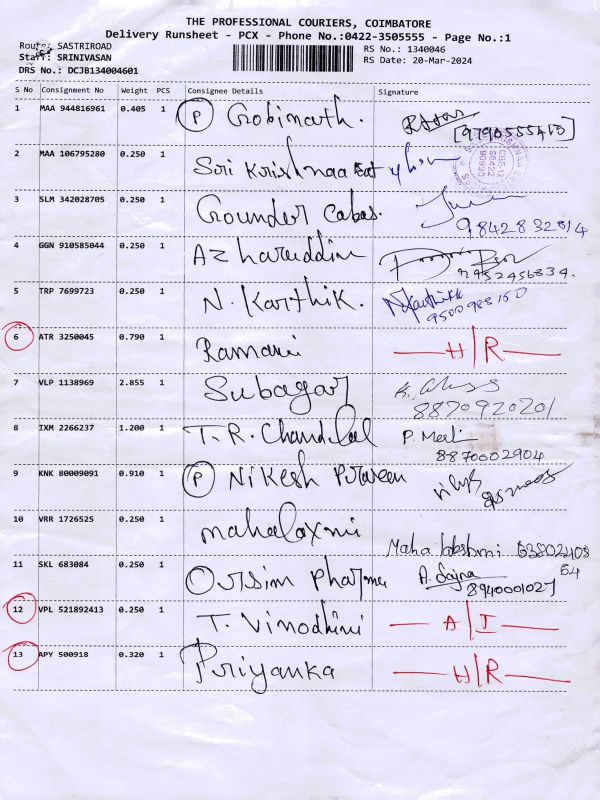 THE PROFESSIONAL COURIERS, COIMBATORE
Delivery Runsheet - PCX - Phone No.:0422-3505555 - Page No.:1
Route: SASTRIROAD
RS No.: 1340046
Staff: SRINIVASAN
RS Date: 20-Mar-2024
DRS No.: DCJB134004601
S No Consignment No Weight PCS Consignee Details Signature
1 MAA 944816961 0.405 1 P Gobinath.
2 MAA 106795280 0.250 1 Sri Krishnaa
3 SLM 342028705 0.250 1 Gounder Cabas.
9842832814
4 GGN 910585044 0.250 1 Azharuddin
9952456834.
5 TRP 7699723 0.250 1 N. Karthik.
9500988150
6 ATR 3250045 0.790 1 Ramani H/R
7 VLP 1138969 2.855 1 Subagar
8870920201
8 IXM 2266237 1.200 1 T.R. Chandilal P. Meeli
8870002904
9 KNK 80009091 0.910 1 P Nikesh Praveen
10 VRR 1726525 0.250 1 mahalaxmi Maha lakshmi 63802408
54
11 SKL 683084 0.250 1 Oursim Pharma A. Sajna
8940001027
12 VPL 521892413 0.250 1 T. Vinodhini A/I
13 APY 500918 0.320 1 Priyanka H/R